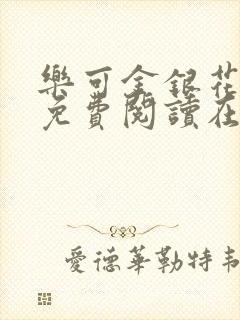 樂可金銀花
免費閱讀在
愛德華勒特韋